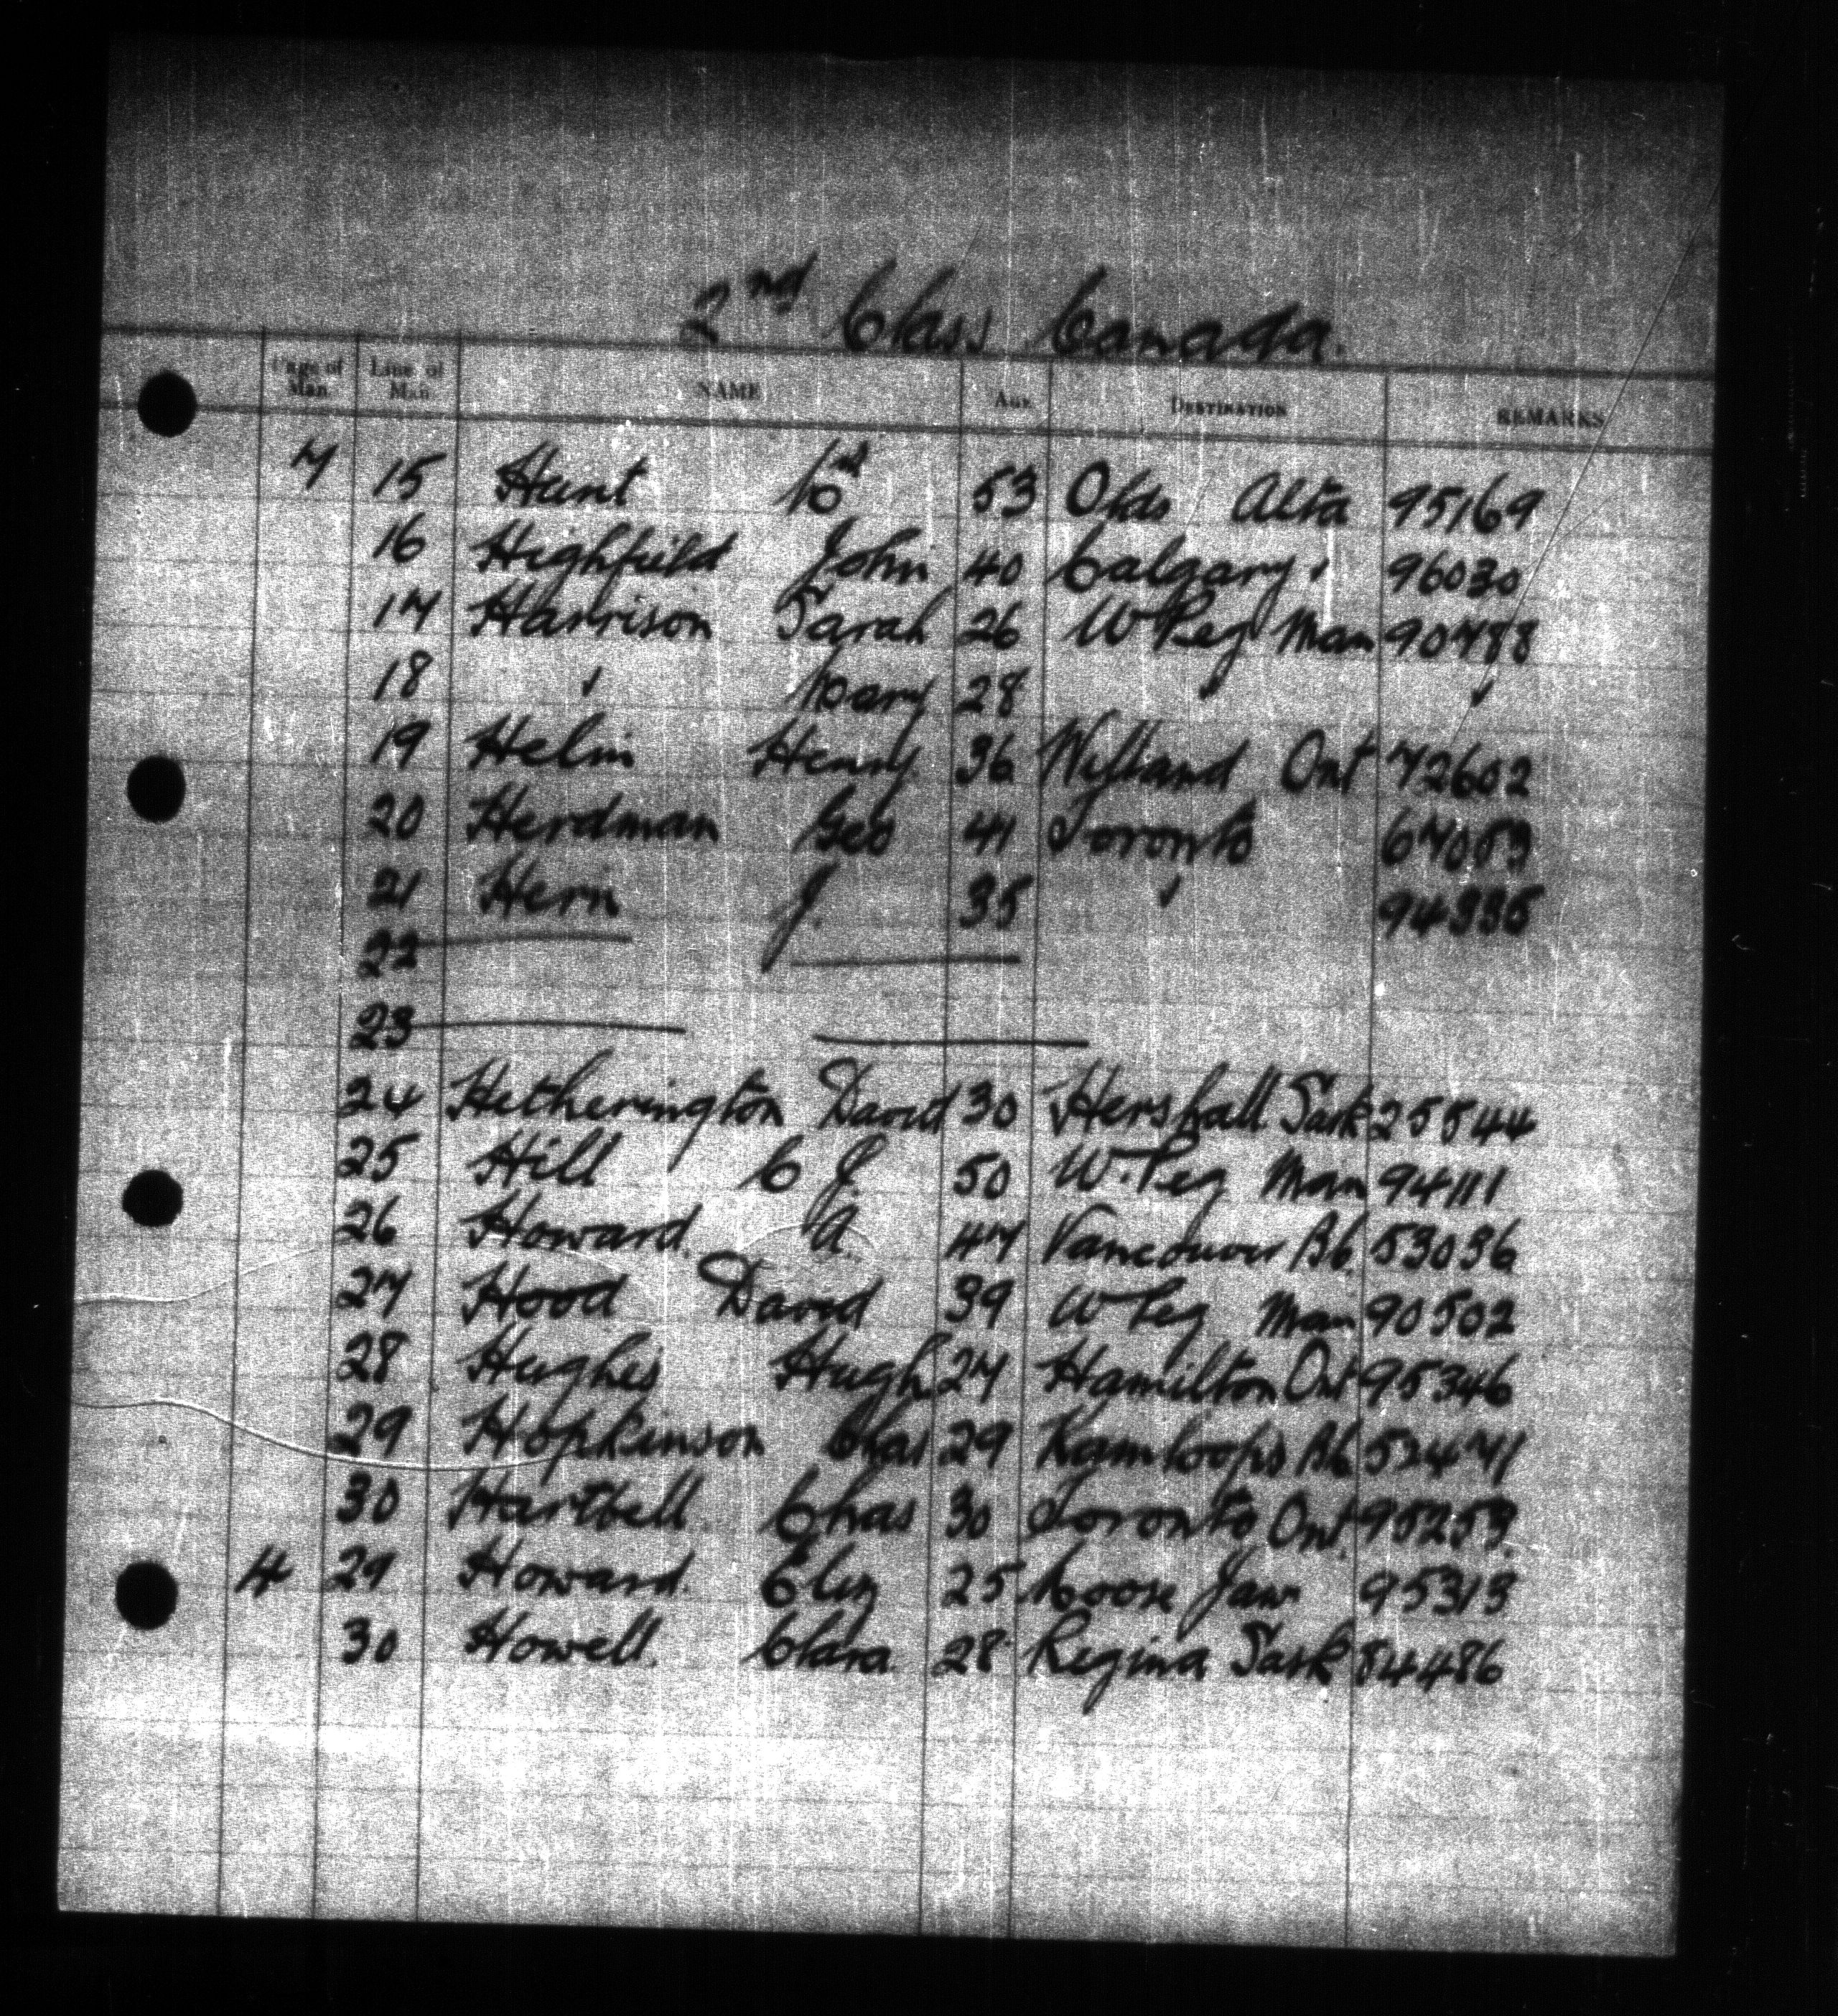 2nd Class Canada.
Page of Man Line of Man NAME AGE DESTINATION REMARKS
7 15 Hunt 53 Olds Alta 95169
16 Highfield John 40 Calgary " 96030
17 Harrison Sarah 26 W Peg Man 90788
18 " Mary 28 " "
19 Helm Henry 36 Welland Ont 72602
20 Herdman Geo 41 Toronto 67053
21 Hern J. 35 " 94335
22
23
24 Hetherington David 30 Hershall Sask 25544
25 Hill C J. 50 W. Peg Man 94111
26 Howard. A. 47 Vancouver BC. 53036
27 Hood David 39 W Peg Man 90502
28 Hughes Hugh 27 Hamilton Ont 95346
29 Hopkinson Chas 29 Kamloops BC 52471
30 Hartbell Chas 30 Toronto Ont. 95253.
4 29 Howard. Eliz 25 Moose Jaw 95313
30 Howell. Clara. 28 Regina Sask 84486